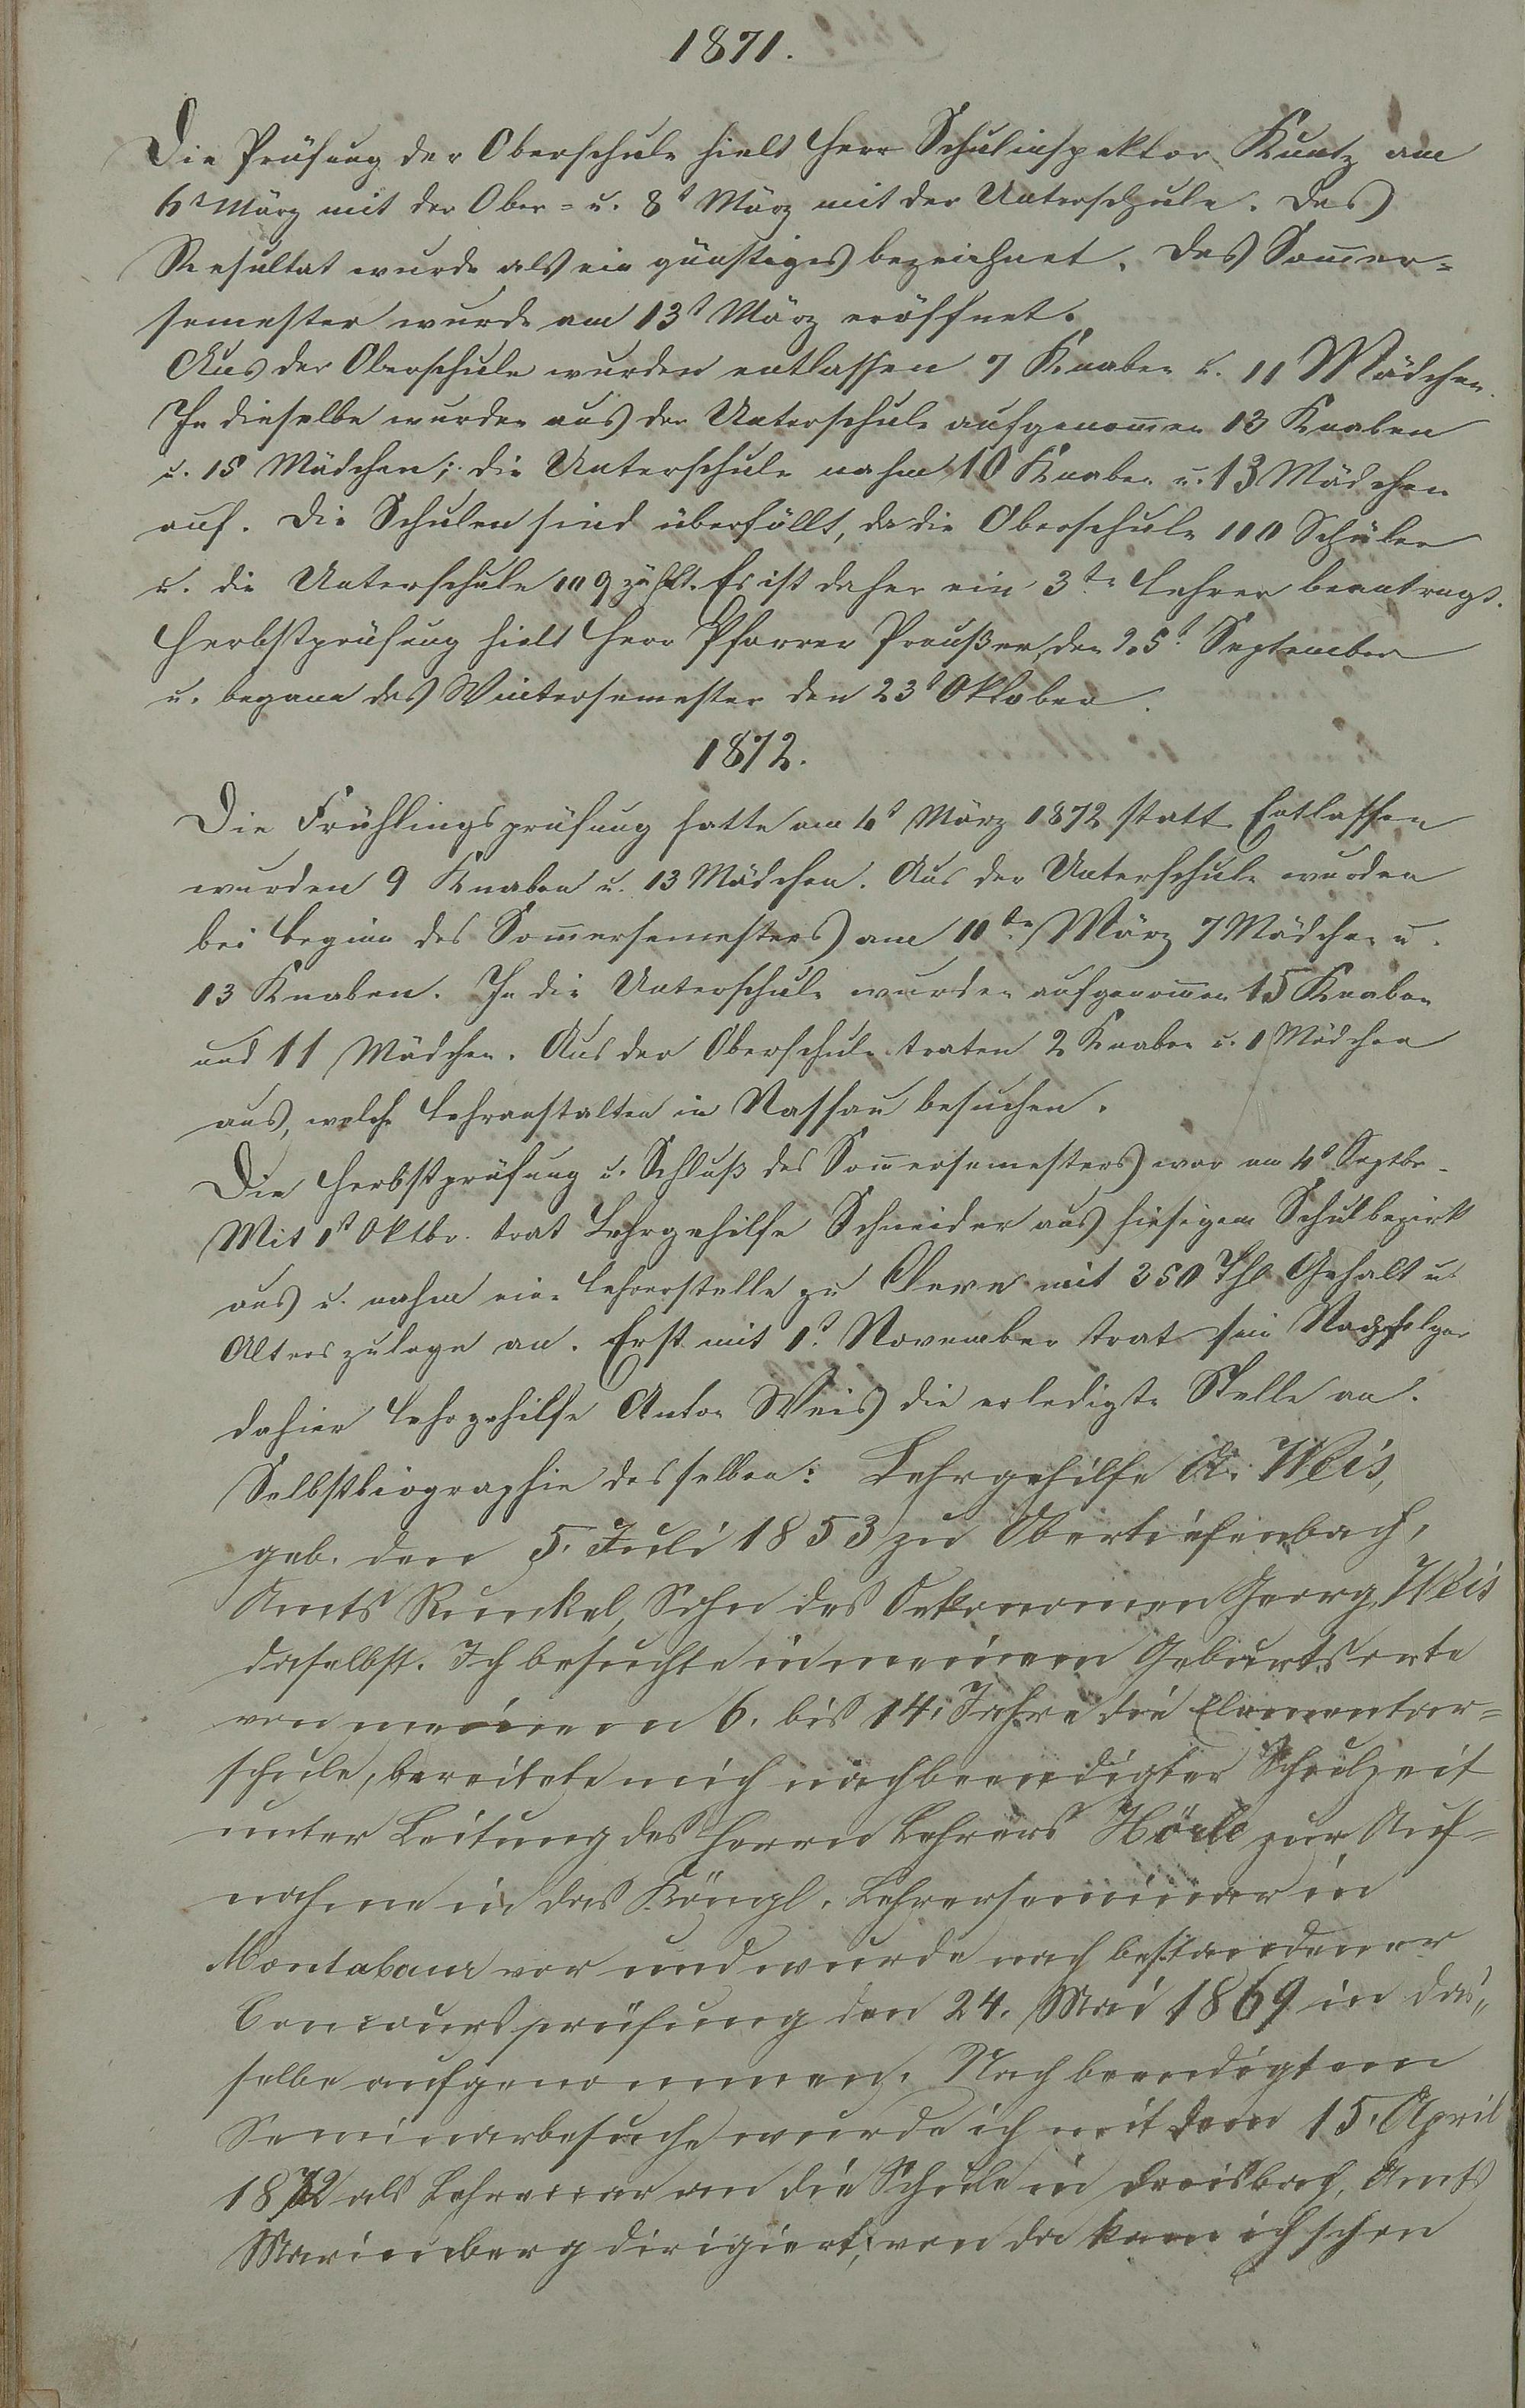 1871.
Die Prüfung der Oberschule hielt Herr Schulinspektor Kuntz am
6t März mit der Ober- u. 8t März mit der Unterschule. Das
Resultat wurde als ein günstiges bezeichnet. Das Som̅er-
semester wurde am 13t März eröffnet.
Aus der Oberschule wurden entlassen 7 Knaben u. 11 Mädchen.
In dieselbe wurden aus der Unterschule aufgenom̅en 13 Knaben
u. 15 Mädchen; die Unterschule nahm 10 Knaben u. 13 Mädchen
auf. Die Schulen sind überfüllt, da die Oberschule 110 Schüler
u. die Unterschule 109 zählt. Es ist daher ein 3ter Lehrer beantragt.
Herbstprüfung hielt Herr Pfarrer Preußer den 25t September
u. begann das Wintersemester den 23t Oktober.
1872.
Die Frühlingsprüfung hatte am 4t März 1872 statt. Entlassen
wurden 9 Knaben u. 13 Mädchen. Aus der Unterschule wurden
bei Beginn des Som̅ersemesters am 11ten März 7 Mädchen u.
13 Knaben. In die Unterschule wurden aufgenom̅en 15 Knaben
und 11 Mädchen. Aus der Oberschule traten 2 Knaben u. 1 Mädchen
aus, welche Lehranstalten in Nassau besuchen.
Die Herbstprüfung u. Schluß des Som̅ersemesters war am 4t Septbr.
Mit 1st Oktbr. trat Lehrgehilfe Schneider aus hiesigem Schulbezirk
aus u. nahm eine Lehrerstelle zu Cleve mit 350 Thl Gehalt u.
Alterszulage an. Erst mit 1t. November trat sein Nachfolger
dahier Lehrgehilfe Anton Weis die erledigte Stelle an.
Selbstbiographie desselben: Lehrgehilfe A. Weis,
geb. den 5. Juli 1853 zu Obertiefenbach,
Amts Runkel, Sohn des Oekonomen Georg Weis
daselbst. Ich besuchte in meinem Geburtsorte
von meinem 6. bis 14. Jahre die Elementar-
schule, bereitete mich nach beendigter Schulzeit
unter Leitung des Herrn Lehrers Hörle zur Auf-
nahme in das Köngl. Lehrerseminar in
Montabaur vor und wurde nach bestandener
Concursprüfung den 24. Mai 1869 in das„
selbe aufgenommen. Nach beendigtem
Seminarbesuche wurde ich mit dem 15. April
1872 als Lehrvicar an die Schule in Dreisbach, Amts
Marienberg dirigiert; von da kam ich schon